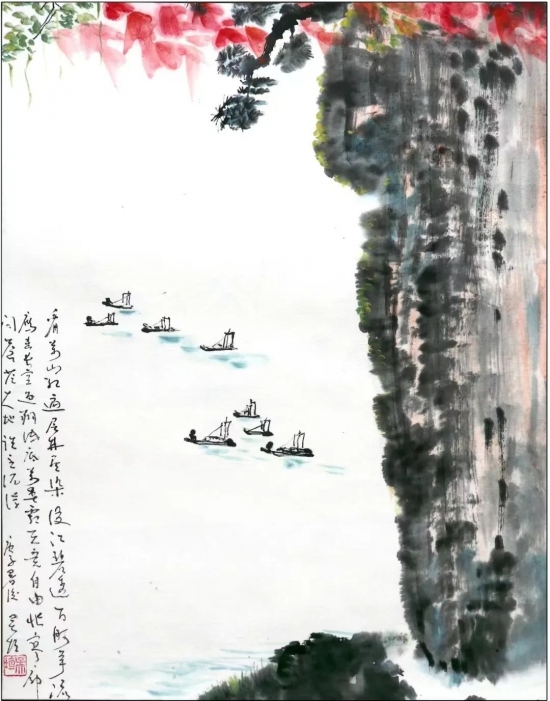 看萬山红遍层林尽染漫江碧透百舸争流
鹰击长空鱼翔浅底萬类霜天竞自由怅寥廓
问苍茫大地谁主沉浮
庚子